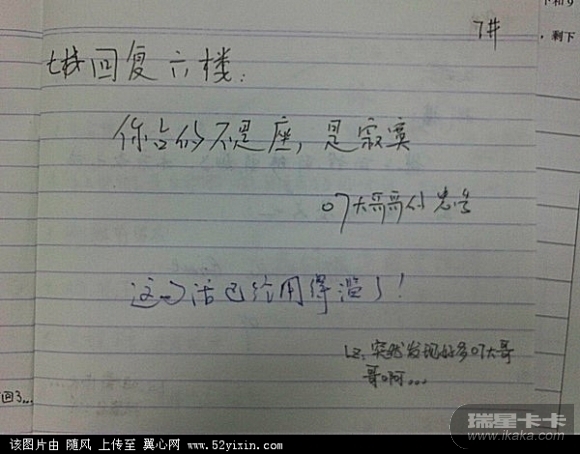 7#
下和9
，剩下
七楼回复六楼：
你占的不是座，是寂寞
07大哥哥
这句话已经用得滥了！
LZ：突然发现好多07大哥
哥啊...
回3...
瑞星卡卡
www.ikaka.com
该图片由 随风 上传至 翼心网 www.52yixin.com